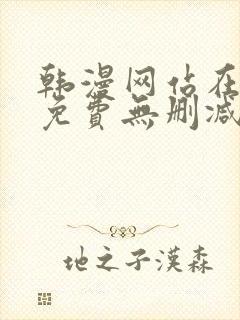 韩漫网站在
免費無刪减
地之子漢森